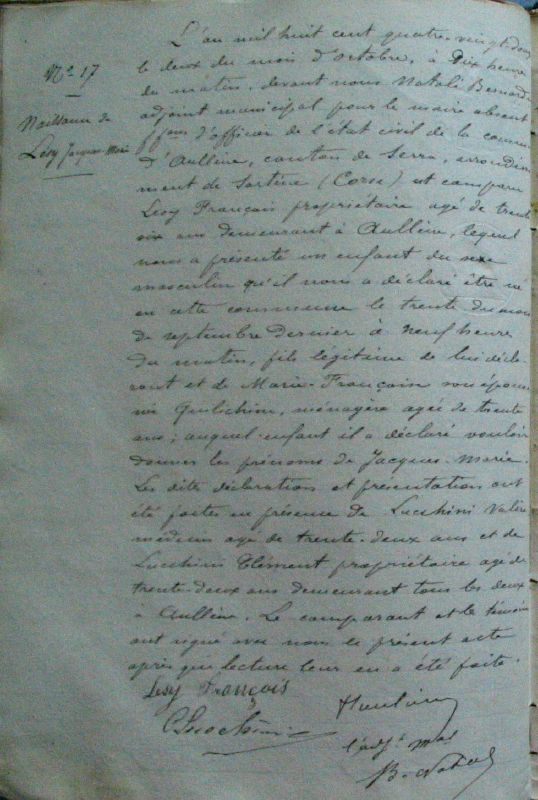 Nº 17
Naissance de
Lesy Jacques Marie
L'an mil huit cent quatre-vingt-douze
le deux du mois d'octobre, à dix heure
du matin, devant nous Natali Bernardin
adjoint municipal pour le maire absent
d'officier de l'état civil de la commune
d'Aullène, canton de Serra, arrondisse
ment de Sartène (Corse) est comparu
Lesy François propriétaire agé de trente
six ans demeurant à Aullène, lequel
nous a présenté un enfant du sexe
masculin qu'il nous a déclaré être né
en cette commune le trente du mois
de septembre dernier à neuf heure
du matin, fils légitime de lui décla-
rant et de Marie-Françoise son épouse
née Quilichini, ménagère agée de trente
ans; auquel enfant il a déclaré vouloir
donner les prénoms de Jacques-Marie.
Les dite déclaration et présentation ont
été faites en présence de Lucchini Valère
médecin agé de trente-deux ans et de
Lucchini Clément propriétaire agé de
trente-deux ans demeurant tous les deux
à Aullène. Le comparant et les témoins
ont signé avec nous le présent acte
après que lecture leur en a été faite.
Lesy François
l'adjt